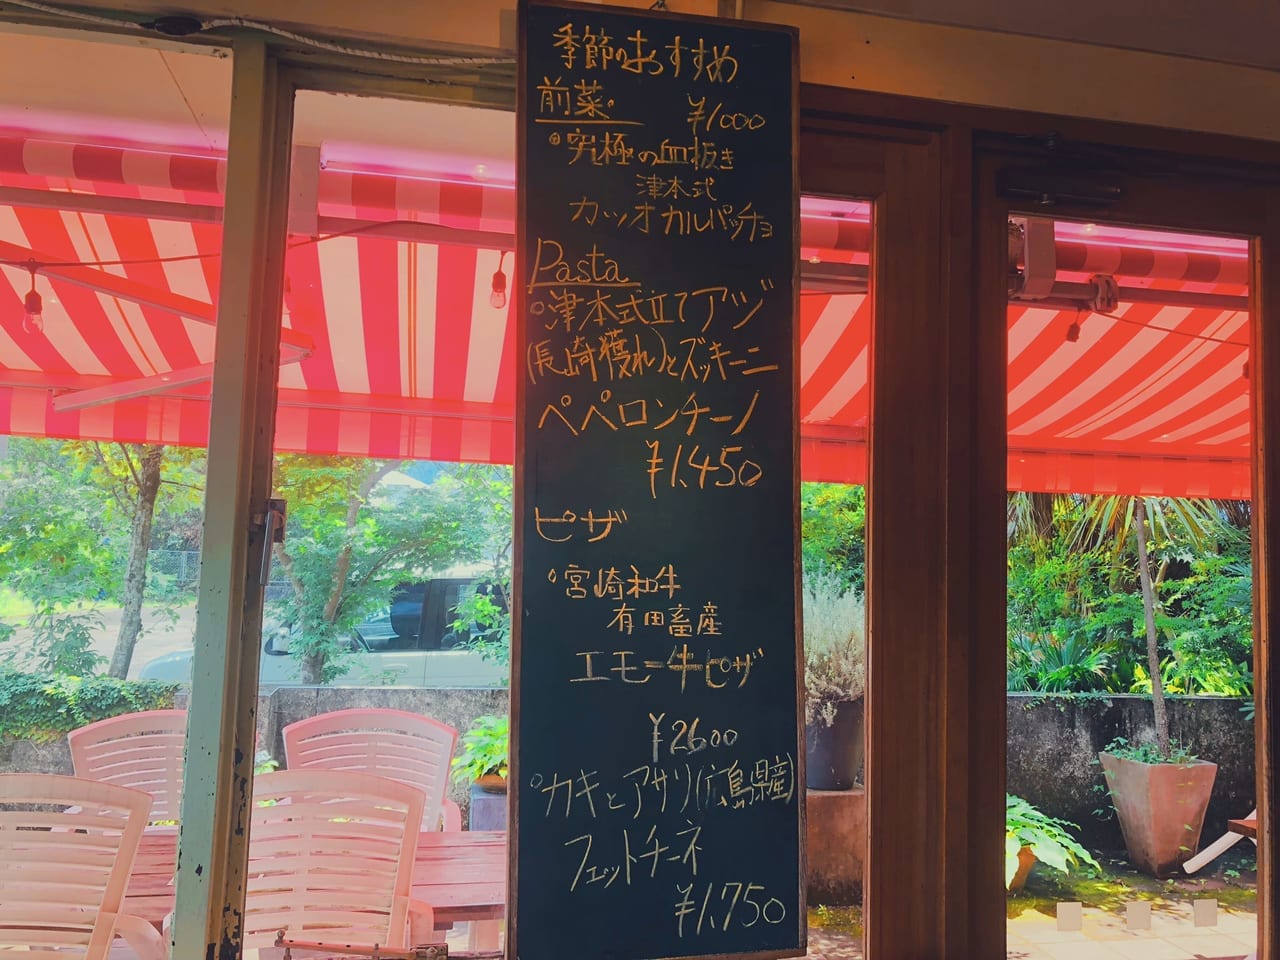 季節のおすすめ
前菜。 ¥1000
°究極の血抜き
津本式
カツオカルパッチョ
Pasta
°津本式立てアジ
(長崎獲れ)とズッキーニ
ペペロンチーノ
¥1.450
ピザ
°宮崎和牛
有田畜産
エモー牛ピザ
¥2600
°カキとアサリ(広島県産)
フェットチーネ
¥1.750